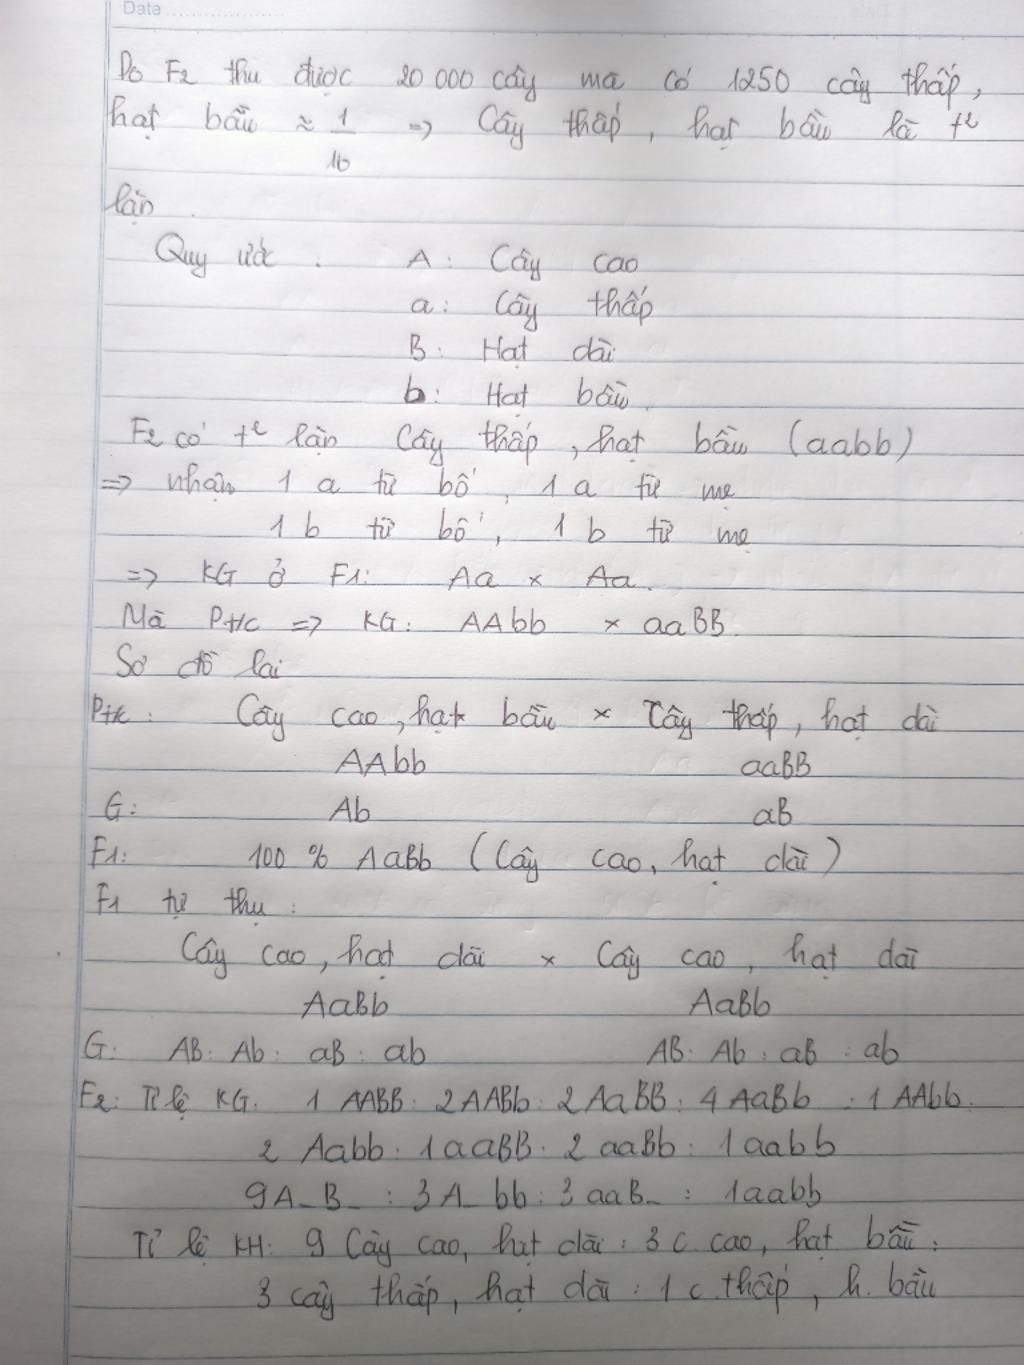 Date
Do F2 thu được 20 000 cây mà có 1250 cây thấp,
hạt bầu ≈ 1/16 => Cây thấp, hạt bầu là t²
lặn.
Quy ước : A : Cây cao
a : Cây thấp
B : Hạt dài
b : Hạt bầu.
F2 có t² lặn Cây thấp, hạt bầu (aabb)
=> nhận 1 a từ bố, 1 a từ mẹ
1 b từ bố, 1 b từ mẹ
=> KG ở F1: Aa x Aa.
Mà Pt/c => KG: AAbb x aaBB.
Sơ đồ lai
Pt/c : Cây cao, hạt bầu x Cây thấp, hạt dài
AAbb aaBB
G: Ab aB
F1: 100 % AaBb (Cây cao, hạt dài)
F1 tự thụ :
Cây cao, hạt dài x Cây cao, hạt dài
AaBb AaBb
G: AB : Ab : aB : ab AB : Ab : aB : ab
F2: Tỉ lệ KG: 1 AABB : 2 AABb : 2 AaBB : 4 AaBb : 1 AAbb.
2 Aabb : 1 aaBB : 2 aaBb : 1 aabb
9 A_B_ : 3 A_bb : 3 aaB_ : 1 aabb
Tỉ lệ KH: 9 Cây cao, hạt dài : 3 c. cao, hạt bầu :
3 cây thấp, hạt dài : 1 c. thấp, h. bầu